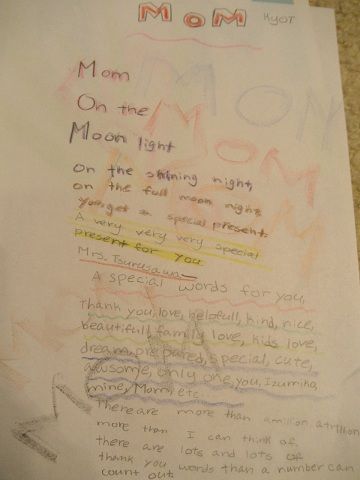 MOM
Mom
On the
Moon light
on the shining night,
on the full moon night,
you get a special present
A very very very special
present for you
Mrs. Tsurusawa
A special words for you,
thank you, love, helpfull, kind, nice,
beautifull, family love, kids love,
dream, prepared, special, cute,
awsome, only one, you, Izumiha,
mine, Mom, etc
There are more than a million, a trillion
more than I can think of,
there are lots and lots of
thank you words than a number can
count out
MOM
MOM